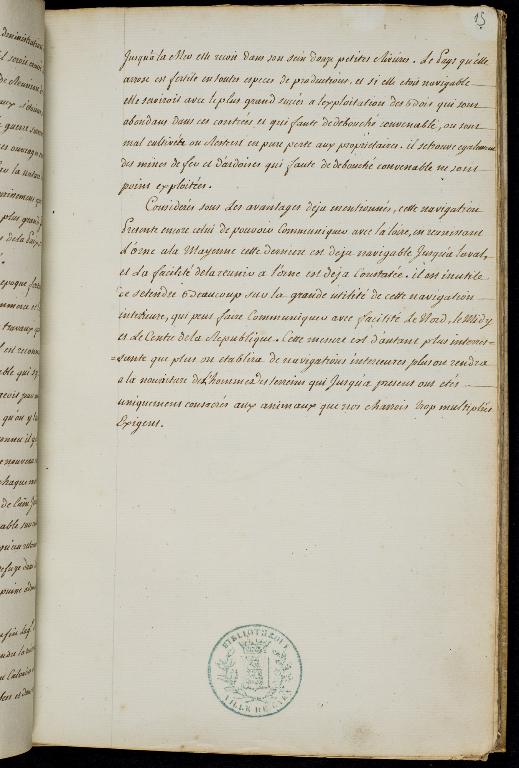 15
Jusqu'à la Mer elle recoit dans son sein douze petites Rivières. Le Pays qu'elle
arrose est fertile en toutes especes de productions, et si elle etoit navigable
elle serviroit avec le plus grand succès a l'exploitation des bois qui sont
abondans dans ces contrées et qui faute de debouché convenable, ou sont
mal cultivés ou Restent en pure perte aux propriétaires. il se trouve egalement
des mines de feu et d'ardoises qui faute de debouché convenable ne sont
point exploitées.
Considerés sous Les avantages deja mentionnés, cette navigation
Présente encore celui de pouvoir Communiquer avec la loire, en reunissant
l'orne a la Mayenne cette derniere est deja navigable Jusqu'a laval,
et La facilité de la reunir a l'orne est deja Constatée. il est inutile
de s'etendre beaucoup sur la grande utilité de cette navigation
interieure, qui peut faire Communiquer avec facilité Le Nord, le Midy
et Le Centre de la Republique. Cette mesure est d'autant plus interes-
=sante que plus on etablira de navigations interieures plus on rendra
a la nouriture de L'homme des terreins qui Jusqu'a present ont etés
uniquement consacrés aux animaux que nos charrois trop multipliés
Exigent.
BIBLIOTHEQUE
VILLE DE CAEN